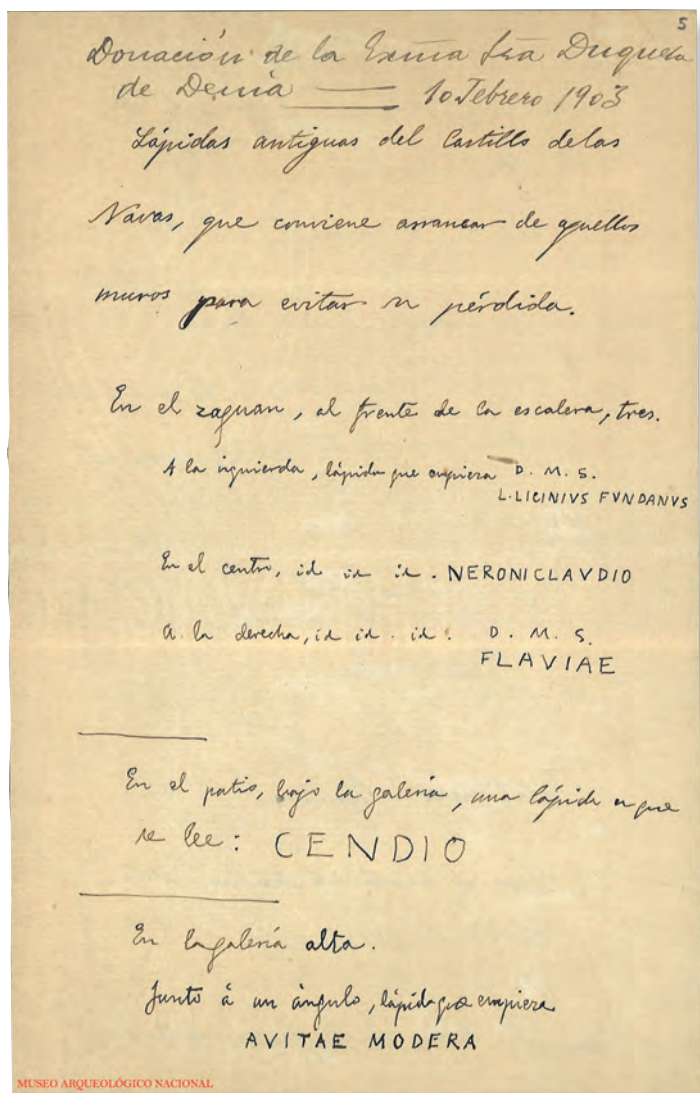 5
Donación de la Exma Sra Duquesa
de Denia — 10 Febrero 1903
Lápidas antiguas del Castillo de las
Navas, que conviene arrancar de aquellos
muros para evitar su pérdida.
En el zaguan, al frente de la escalera, tres.
A la izquierda, lápida que empieza D. M. S.
L. LICINIVS FVNDANVS
En el centro, id id id. NERONI CLAVDIO
A la derecha, id id. id. D. M. S.
FLAVIAE
En el patio, bajo la galería, una lápida en que
se lee: CENDIO
En la galería alta.
Junto á un ángulo, lápida que empieza
AVITAE MODERA
MUSEO ARQUEOLÓGICO NACIONAL